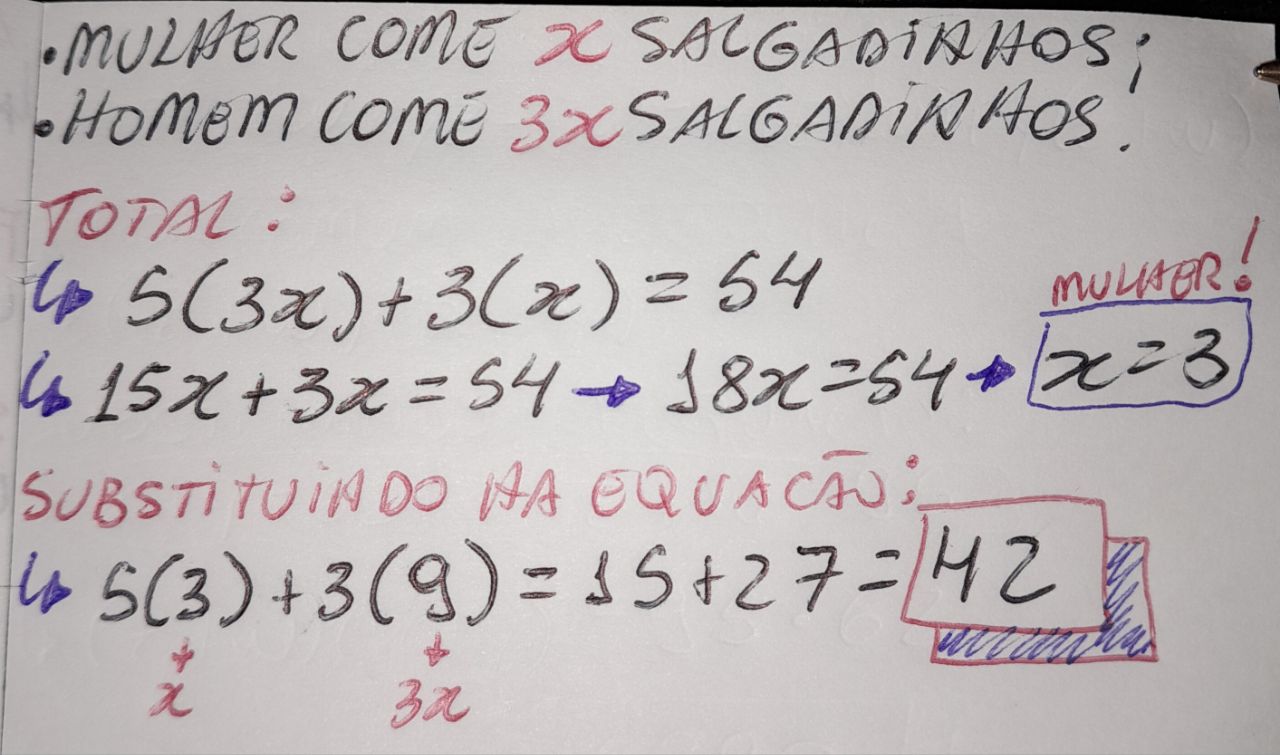 • MULHER COME x SALGADINHOS;
• HOMEM COME 3x SALGADINHOS.
TOTAL:
↳ 5(3x) + 3(x) = 54
MULHER!
↳ 15x + 3x = 54 → 18x = 54 → x = 3
SUBSTITUINDO NA EQUAÇÃO:
↳ 5(3) + 3(9) = 15 + 27 = 42
x 3x